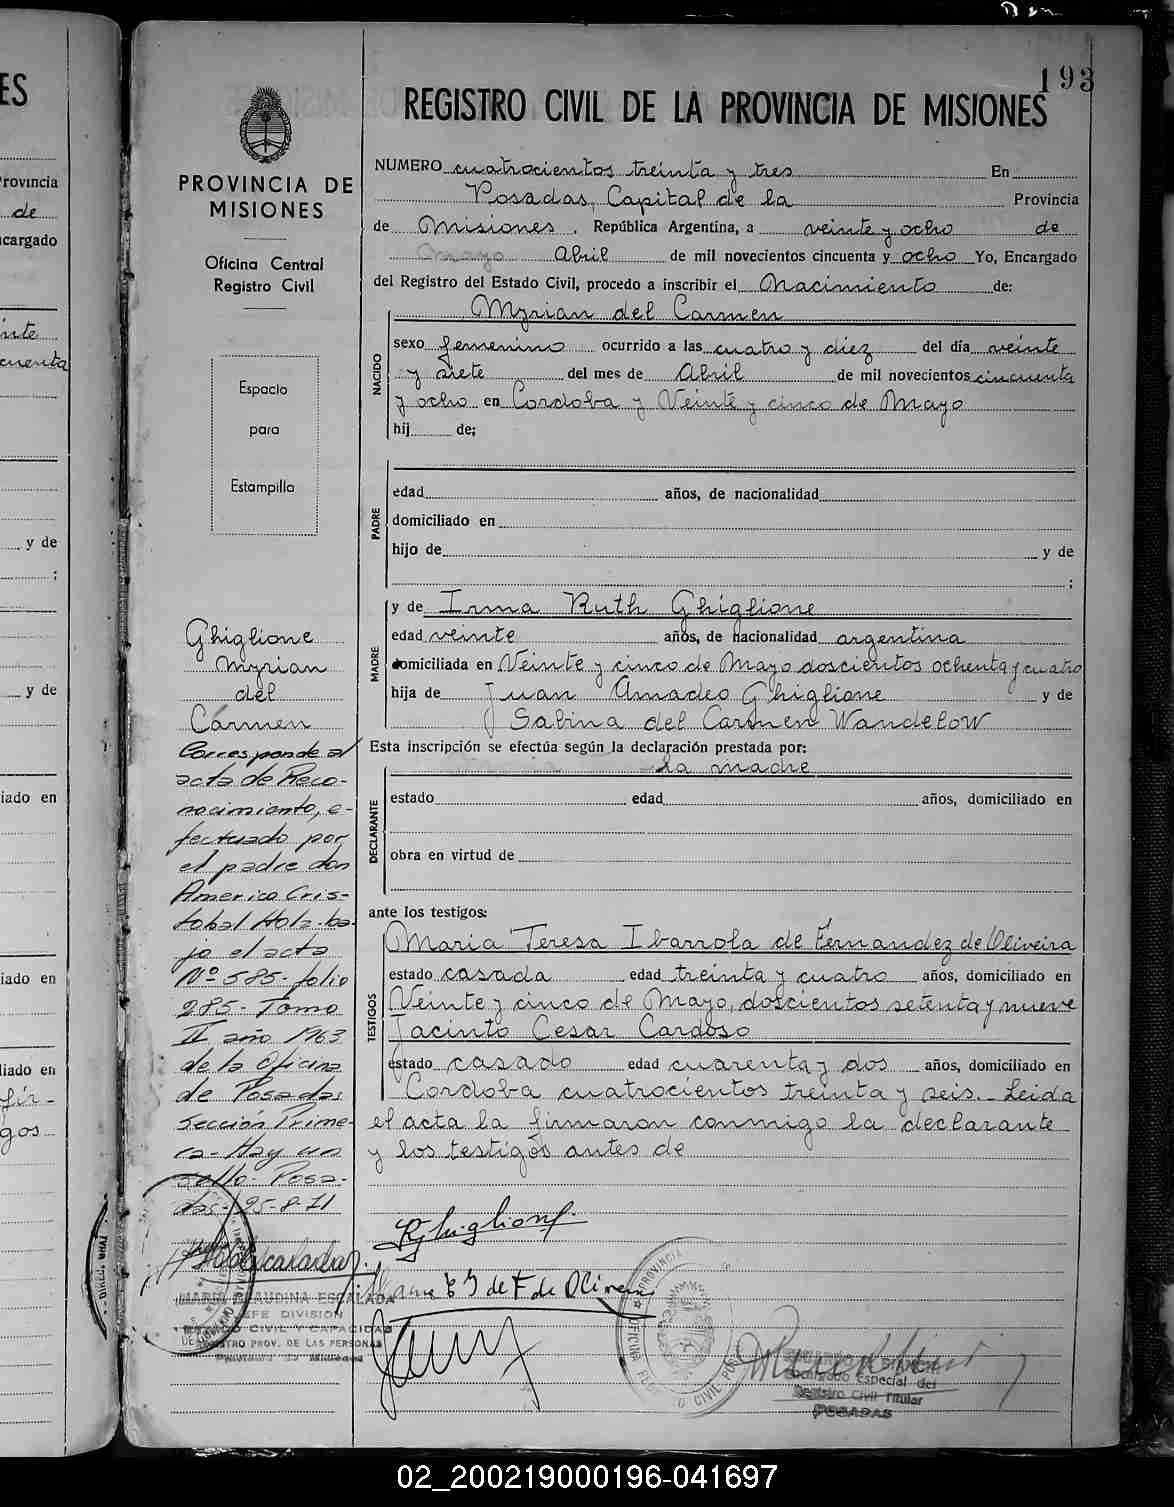 193
REGISTRO CIVIL DE LA PROVINCIA DE MISIONES
PROVINCIA DE
MISIONES
Oficina Central
Registro Civil
Espacio
para
Estampilla
NUMERO cuatrocientos treinta y tres En
Posadas, Capital de la Provincia
de Misiones. República Argentina, a veinte y ocho de
mayo Abril de mil novecientos cincuenta y ocho Yo, Encargado
del Registro del Estado Civil, procedo a inscribir el Nacimiento de:
Myrian del Carmen
NACIDO
sexo femenino ocurrido a las cuatro y diez del día veinte
y siete del mes de Abril de mil novecientos cincuenta
y ocho en Cordoba y Veinte y cinco de Mayo
hij de;
PADRE
edad años, de nacionalidad
domiciliado en
hijo de y de
;
MADRE
y de Irma Ruth Ghiglione
edad veinte años, de nacionalidad argentina
domiciliada en Veinte y cinco de Mayo doscientos ochenta y cuatro
hija de Juan Amadeo Ghiglione y de
Sabina del Carmen Wandelow
Esta inscripción se efectúa según la declaración prestada por:
la madre
DECLARANTE
estado edad años, domiciliado en
obra en virtud de
ante los testigos:
TESTIGOS
Maria Teresa Ibarrola de Fernandez de Oliveira
estado casada edad treinta y cuatro años, domiciliado en
Veinte y cinco de Mayo, doscientos setenta y nueve
Jacinto Cesar Cardoso
estado casado edad cuarenta y dos años, domiciliado en
Cordoba cuatrocientos treinta y seis.- Leida
el acta la firmaron conmigo la declarante
y los testigos antes de
Ghiglione
Myrian
del
Carmen
Corresponde al
acta de Reco-
nocimiento, e-
fectuado por
el padre don
Americo Cris-
tobal Hola-ba-
jo el acta
Nº 585- folio
285- Tomo
II año 1963
de la Oficina
de Posadas
Sección Prime-
ra- Hay un
sello. Posa-
das- 25-8-71
RGhiglione
de F de Oliveira
MARIA CLAUDINA ESCALADA
JEFE DIVISION
CIVIL Y CAPACIDAD
REGISTRO PROV. DE LAS PERSONAS
Encargado Especial del
Registro Civil Titular
POSADAS
ES
Provincia
de
ncargado
inte
cuenta
y de
;
y de
iado en
iado en
liado en
fir-
gos
02_200219000196-041697